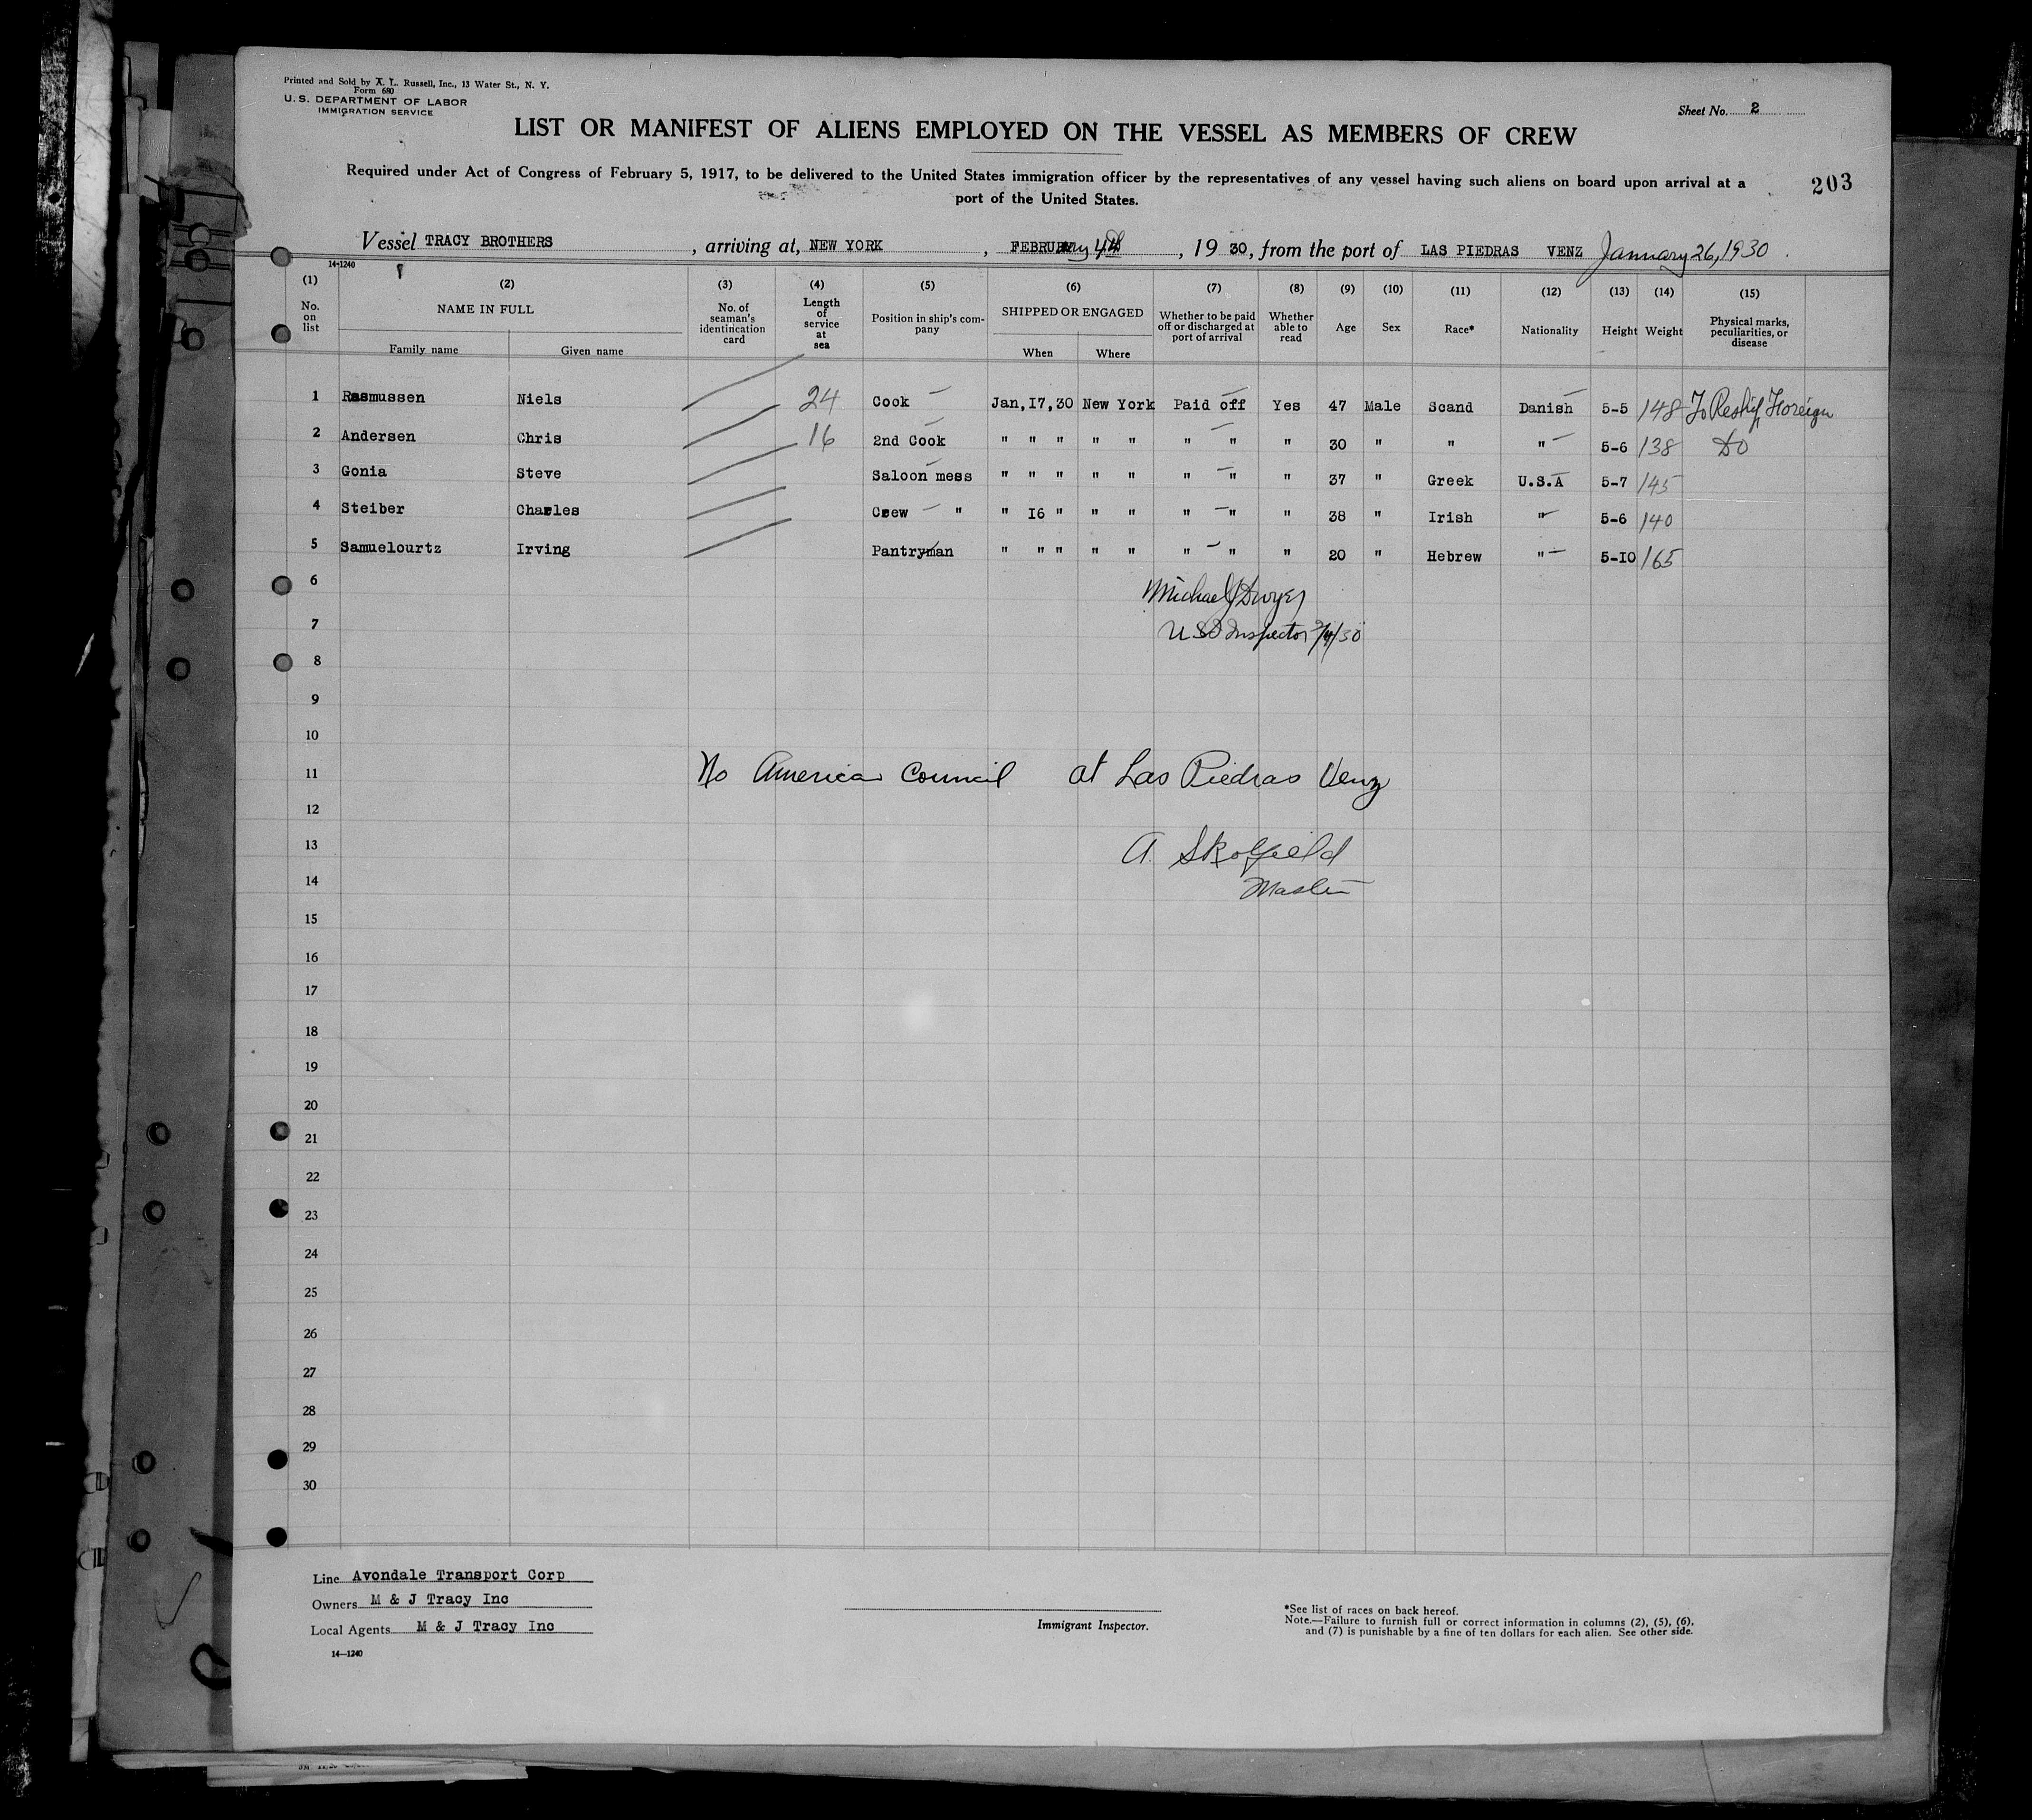 Printed and Sold by A. L. Russell, Inc., 13 Water St., N. Y.
Form 680
U. S. DEPARTMENT OF LABOR
IMMIGRATION SERVICE
Sheet No. 2
LIST OR MANIFEST OF ALIENS EMPLOYED ON THE VESSEL AS MEMBERS OF CREW
Required under Act of Congress of February 5, 1917, to be delivered to the United States immigration officer by the representatives of any vessel having such aliens on board upon arrival at a
port of the United States.
203
Vessel TRACY BROTHERS, arriving at, NEW YORK, FEBRUARY 4th, 19 30, from the port of LAS PIEDRAS VENZ January 26, 1930.
14-1240
(1) (2) (3) (4) (5) (6) (7) (8) (9) (10) (11) (12) (13) (14) (15)
No. on list NAME IN FULL No. of seaman's identincation card Length of service at sea Position in ship's company SHIPPED OR ENGAGED Whether to be paid off or discharged at port of arrival Whether able to read Age Sex Race* Nationality Height Weight Physical marks, peculiarities, or disease
Family name Given name When Where
1 Rasmussen Niels 24 Cook Jan,17,30 New York Paid off Yes 47 Male Scand Danish 5-5 148 To Reship Foreign
2 Andersen Chris 16 2nd Cook " " " " " " " " 30 " " " 5-6 138 DO
3 Gonia Steve Saloon mess " " " " " " " " 37 " Greek U.S.A 5-7 145
4 Steiber Charles Crew " " 16 " " " " " " 38 " Irish " 5-6 140
5 Samuelourtz Irving Pantryman " " " " " " " " 20 " Hebrew " 5-10 165
6
Michael J Dwyer
7
Inspector 2/4/30
8
9
10
11 No America Council at Las Piedras Venz
12
13 A. Skolfield
14 Master
15
16
17
18
19
20
21
22
23
24
25
26
27
28
29
30
Line Avondale Transport Corp
Owners M & J Tracy Inc
Local Agents M & J Tracy Inc
14-1240
Immigrant Inspector.
*See list of races on back hereof.
Note.—Failure to furnish full or correct information in columns (2), (5), (6),
and (7) is punishable by a fine of ten dollars for each alien. See other side.